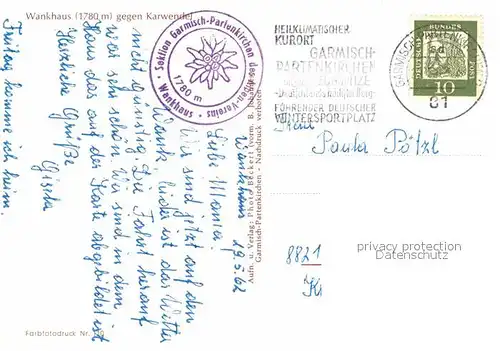 Wankhaus (1780 m) gegen Karwendel
Sektion Garmisch-Partenkirchen des Alpen-Vereins
1780 m
· Wankhaus ·
Wankhaus 19.5.62
Liebe Mama!
Wir sind jetzt auf dem
Wank, leider ist das Wetter
nicht günstig. Die Fahrt herauf
war sehr schön. Wir sind in dem
Haus das auf der Karte abgebildet ist
Herzliche Grüße
Gisela
Freitag komme ich heim.
Farbfotodruck Nr.
Aufn. u. Verlag: Photo Beckert
Garmisch-Partenkirchen - Nachdruck verboten
HEILKLIMATISCHER
KURORT
GARMISCH-
PARTENKIRCHEN
FÜHRENDER DEUTSCHER
WINTERSPORTPLATZ
GARMISCH-PARTENKIRCHEN
81
DEUTSCHE BUNDESPOST
10
Paula Pötzl
8821
privacy protection
Datenschutz